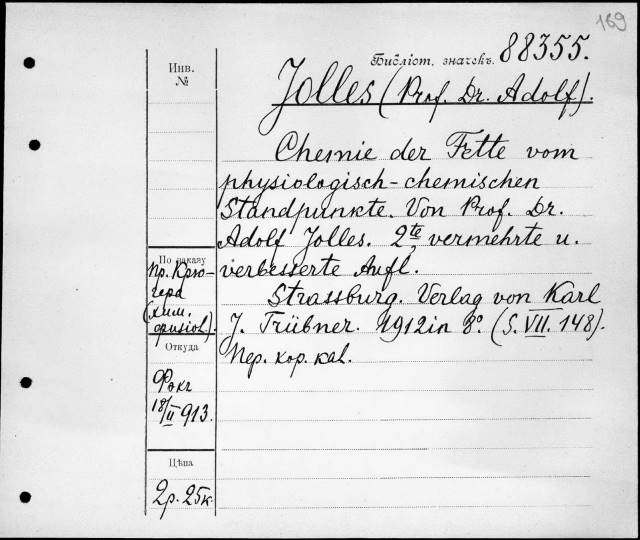 169
Библіот. значекъ. 88355.
Инв.
№
Jolles (Prof. Dr. Adolf).
Chemie der Fette vom
physiologisch-chemischen
Standpunkte. Von Prof. Dr.
Adolf Jolles. 2te, vermehrte u.
verbesserte Aufl.
Strassburg. Verlag von Karl
J. Trübner. 1912 in 8º. (S. VII. 148).
Пер. кор. каl.
По заказу
пр. Крю-
гера
(хим.
физiol.)
Откуда
Фокъ
18/II 913.
Цѣна
2р. 25к.